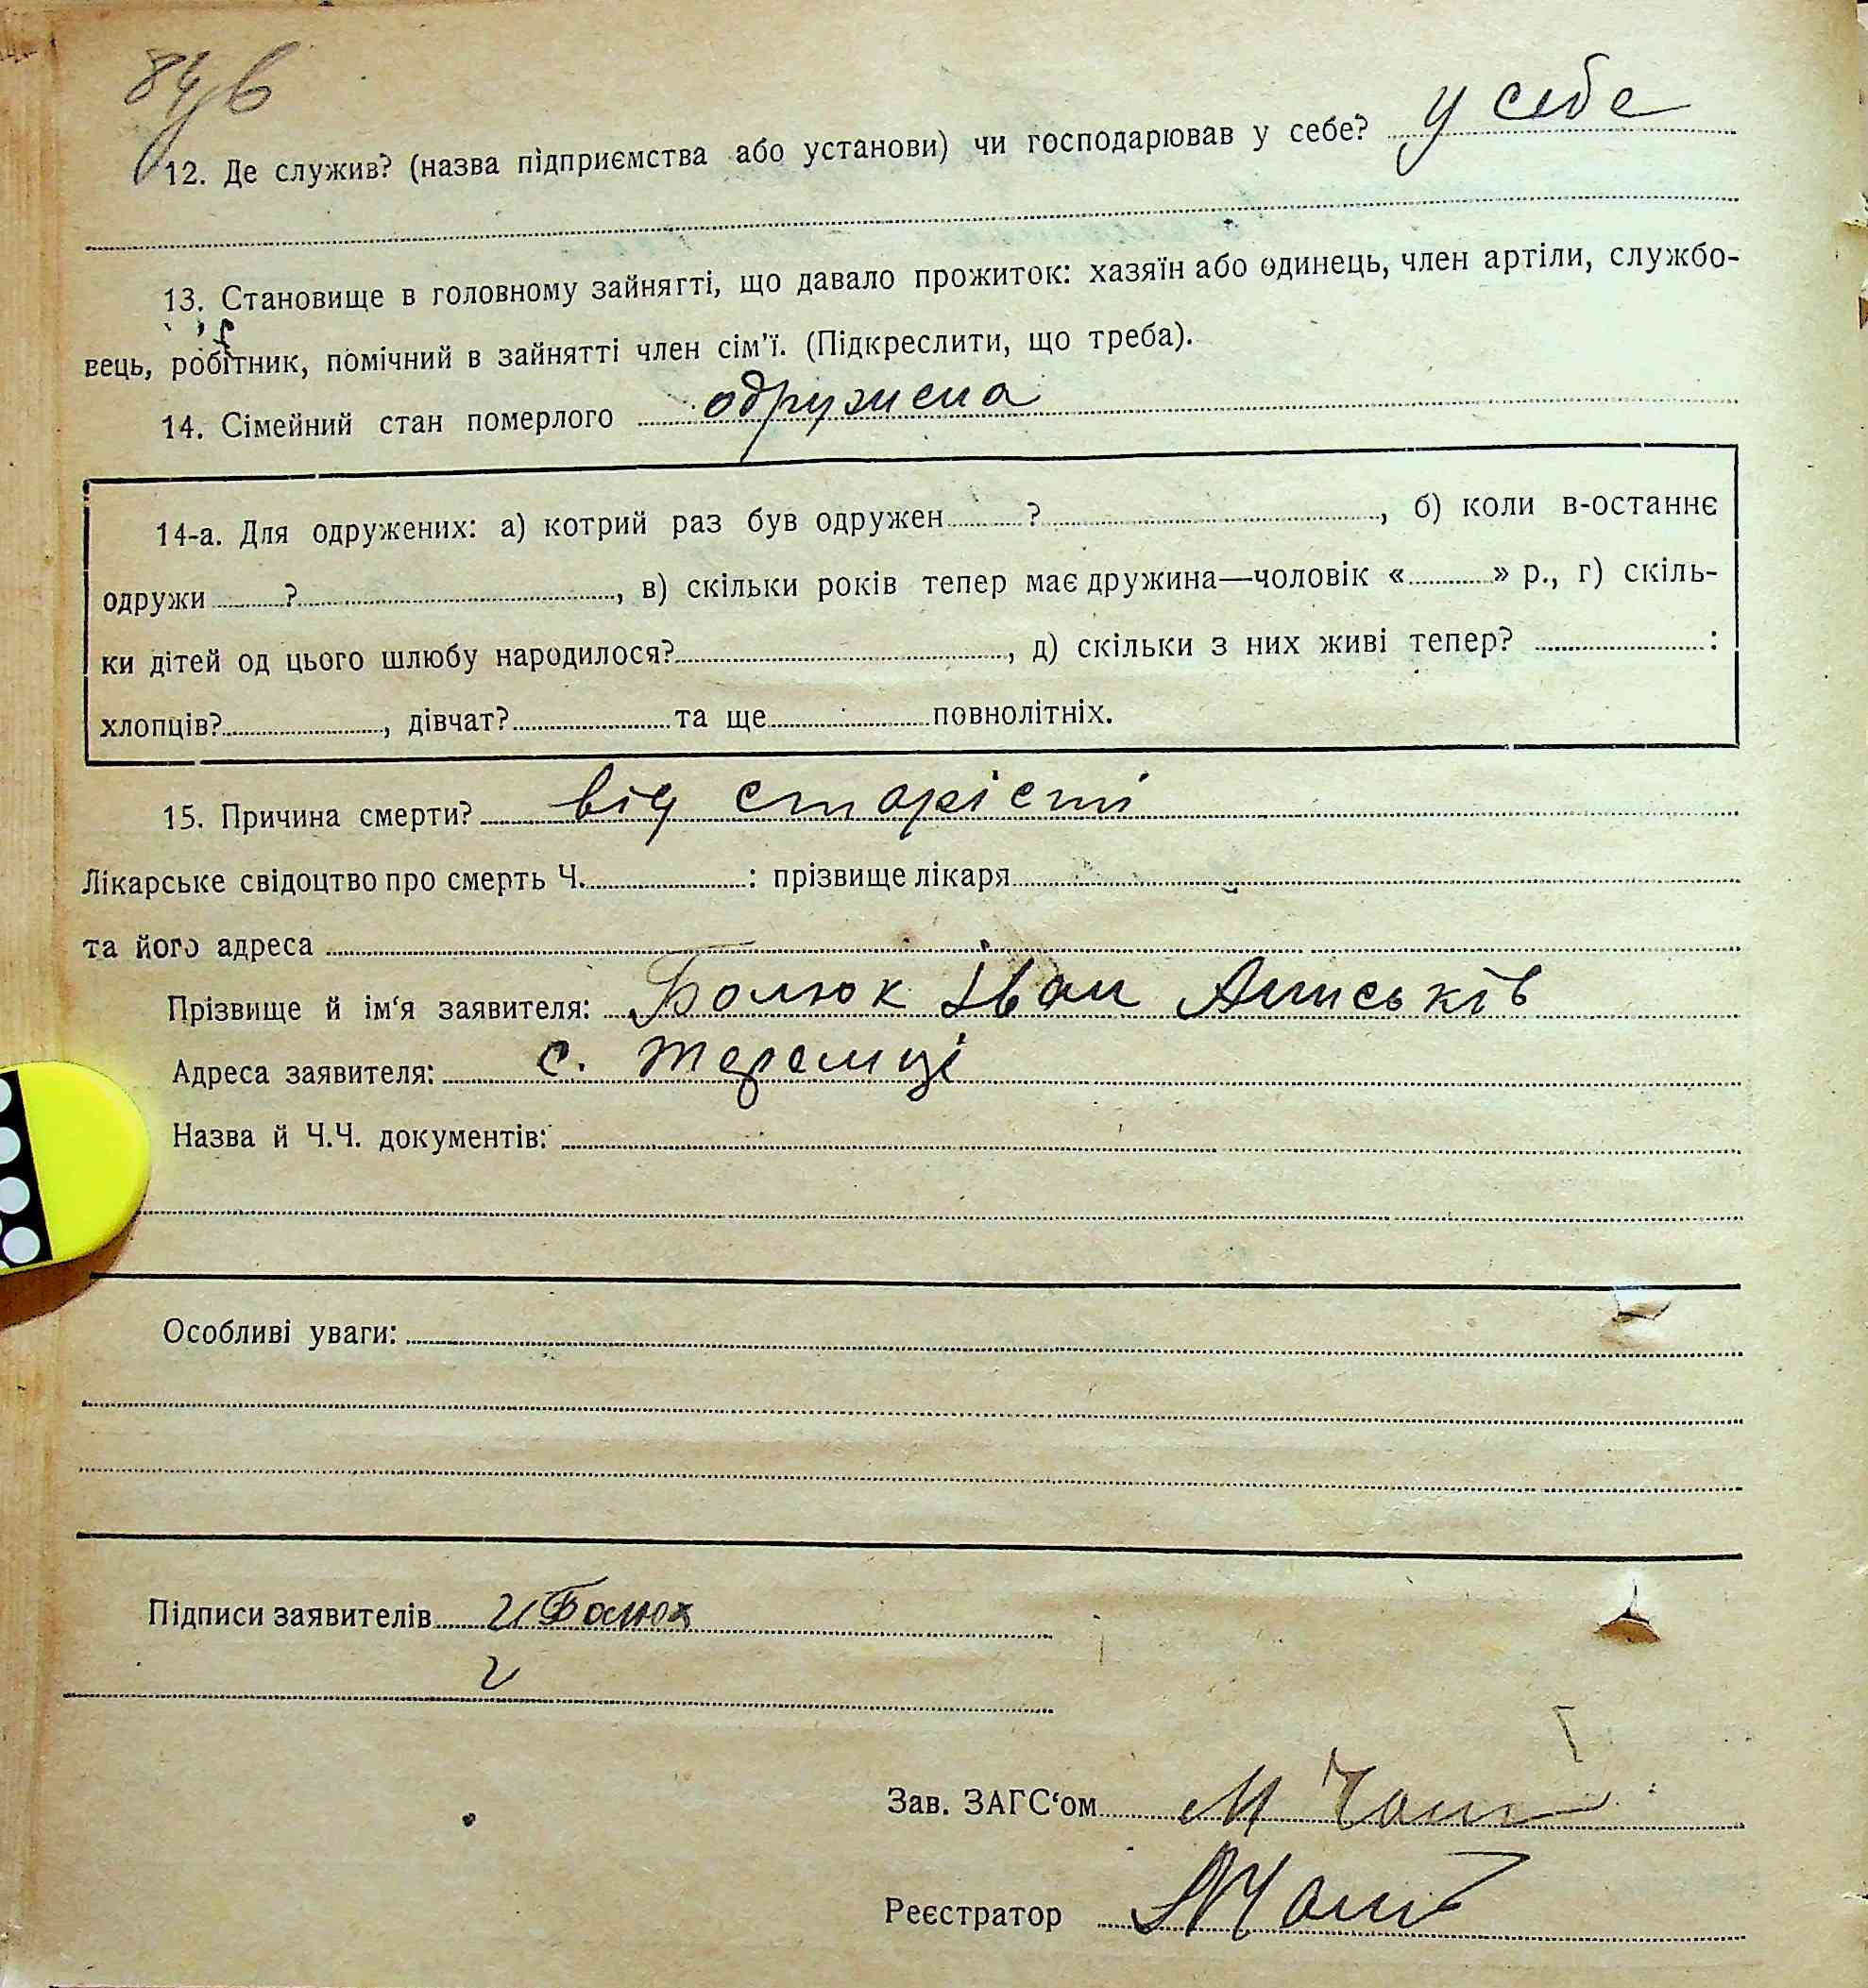 84
12. Де служив? (назва підприємства або установи) чи господарював у себе? у себе
13. Становище в головному зайнятті, що давало прожиток: хазяїн або одинець, член артіли, службо-
вець, робітник, помічний в зайнятті член сім'ї. (Підкреслити, що треба).
14. Сімейний стан померлого одружена
14-а. Для одружених: а) котрий раз був одружен ? , б) коли в-останнє
одружи ? , в) скільки років тепер має дружина—чоловік « » р., г) скіль-
ки дітей од цього шлюбу народилося? , д) скільки з них живі тепер? :
хлопців? , дівчат? та ще повнолітніх.
15. Причина смерти? від старісті
Лікарське свідоцтво про смерть Ч. : прізвище лікаря
та його адреса
Прізвище й ім'я заявителя: Болюк Іван
Адреса заявителя: с. Теремці
Назва й Ч.Ч. документів:
Особливі уваги:
Підписи заявителів И Болюк
Зав. ЗАГС'ом М
Реєстратор